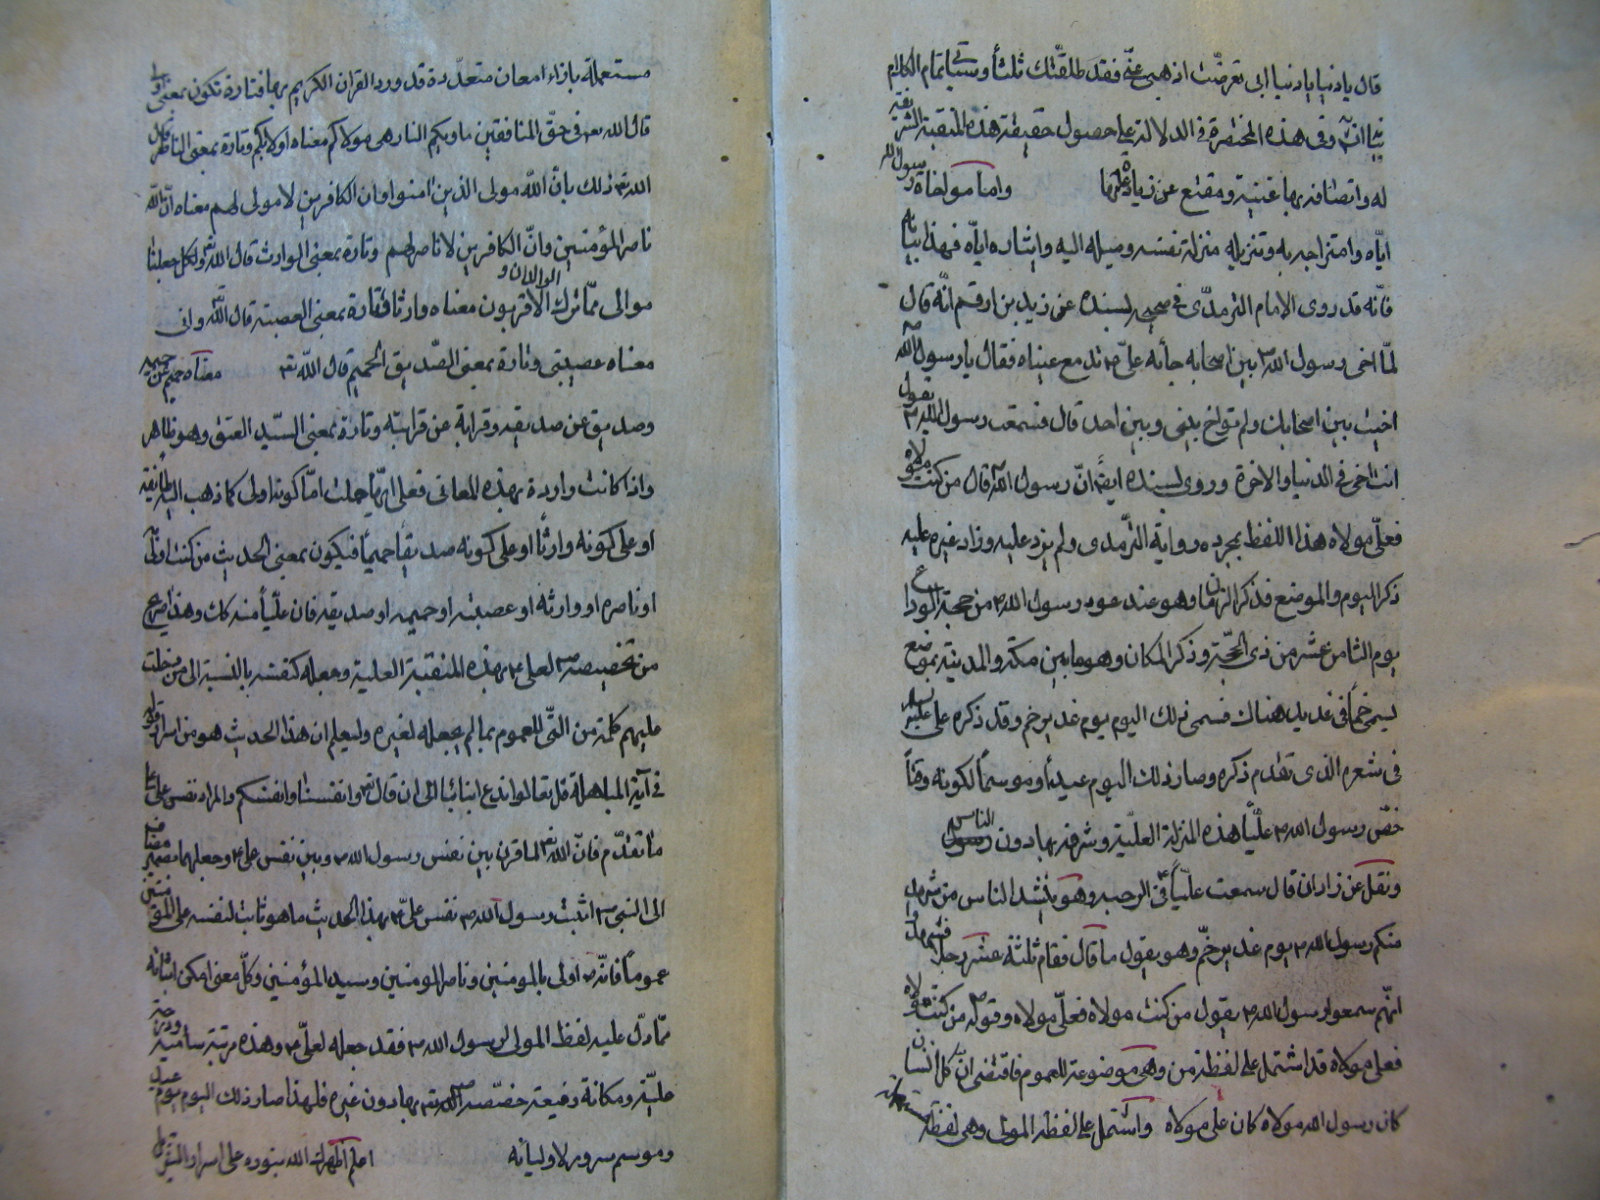 قال يا دنيا يا دنيا ابي تعرضت اذهبي عني فقد طلقتك ثلثاً وسيأتي تمام الكلام
وفي هذه المختصرة في الدلالة على حصول حقيقة هذه المنقبة الشريفة
له واتصافه بها غنية ومقنع عن زيادة عليها وامّا مولخاة رسول الله
ايّاه وامتزاجه به وتنزيله منزلة نفسه وميله اليه وايثاره ايّاه فهذا بيانه
فانّه قد روى الامام الترمذّى في صحيحه بسنده عن زيد بن ارقم انّه قال
لمّا اخى رسول الله ص بين اصحابه جأه علىّ ع تدمع عيناه فقال يا رسول الله
اخيت بين اصحابك ولم تواخ بيني وبين احد قال فسمعت رسول الله ص يقول
انت اخى في الدنيا والاخرة وروى بسنده ايضاً انّ رسول الله قال من كنت مولاه
فعلىّ مولاه هذا اللفظ بمجرده رواية الترمذى ولم يزد عليه وزاد غيره عليه
ذكر اليوم والموضع فذكر الزمان وهو عند عود رسول الله ص من حجة الوداع
يوم الثامن عشر من ذى الحجّة وذكر المكان وهو ما بين مكة والمدينة بموضع
يسمى خماً في غدير هناك فسمى ذلك اليوم يوم غدير خم وقد ذكره على عليه السلم
في شعره الذى تقدم ذكره وصار ذلك اليوم عيداً وموسماً لكونه وقتاً
خصّ رسول الله ص عليّاً هذه المنزلة العليّة وشرفه بها دون الناس
ونقل عن زاذان قال سمعت عليّاً ع في الرحبه وهو ينشد الناس من شهد
منكم رسول الله ص يوم غدير خمّ وهو يقول ما قال فقام ثلثة عشر رجلا فشهدوا
انّهم سمعوا رسول الله ص يقول من كنت مولاه فعلىّ مولاه وقوله ص من كنت مولاه
فعلى مولاه قد اشتمل على لفظة من وهى موضوعة للعموم فاقتضى انّ كل انسان
كان رسول الله مولاه كان على مولاه واشتمل على لفظة المولى وهى لفظة
مستعملة بازاء معان متعدّدة قد ورد القران الكريم بها فتارة تكون بمعنى اولى
قال الله تع في حقّ المنافقين ماويكم النار هى مولاكم معناه اولا بكم وتارة بمعنى الناصر قال
الله تع ذلك بانّ الله مولى الذين امنوا وان الكافرين لا مولى لهم معناه انّ الله
ناصر المؤمنين وانّ الكافرين لا ناصر لهم وتارة بمعنى الوارث قال الله تع ولكل جعلنا
موالى ممّا ترك الوالدان والاقربون معناه وارثا وتارة بمعنى العصبة قال الله تع وانى
معناه عصبتى وتارة بمعنى الصّديق الحميم قال الله تع معناه حميم عن حميم
وصديق عن صديقه وقرابة عن قرابته وتارة بمعنى السّيد العتق وهو ظاهر
واذا كانت واردة بهذه المعانى فعلى ايّها حملت امّا كونه اولى كما ذهب اليه طائفة
او على كونه وارثاً او على كونه صديقاً حميماً فيكون بمعنى الحديث من كنت اولى به
او ناصره او وارثه او عصبته او حميمه او صديقه فان عليّاً منه كك وهذا صريح
من تخصيصه ص لعلى ع بهذه المنقبة العلية وجعله كنفسه بالنسبة الى من دخلت
عليهم كلمة من التّى للعموم بما لم يجعله لغيره وليعلم ان هذا الحديث هو من اسرار قوله
في آية المباهلة قل تعالوا ندع ابنائنا الى ان قال وانفسنا وانفسكم والمراد نفس على ع
ما تقدّم فانّ الله تع لما قرن بين نفس رسول الله ص وبين نفس على ع وجعلهما بضمير مضاف
الى النبى ص اثبت رسول الله ص نفس علىّ ع بهذا الحديث ما هو ثابت لنفسه على المؤمنين
عموماً فانّه ص اولى بالمومنين وناصر المومنين وسيد المؤمنين وكلّ معنى امكن اثباته
ممّا دلّ عليه لفظ المولى لرسول الله ص فقد جعله لعلىّ ع وهذه مرتبة سامية ودرجة
عليّة ومكانة رفيعة خصّصه بها دون غيره فلهذا صار ذلك اليوم يوم عيد
وموسم سرور لاوليائه اعلم اظهرك الله بنوره على اسرار التنزيل